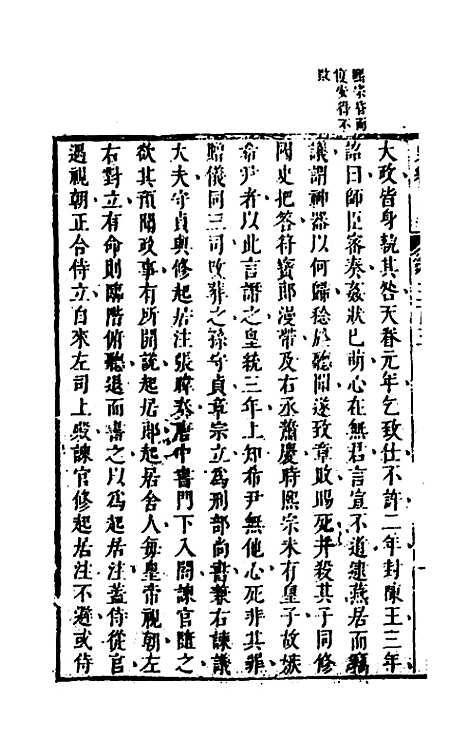 熙宗昏而
愎安得不
敗
大政皆身執其咎天眷元年乞致仕不許二年封陳王三年
詔曰師臣審奏姦狀已萌心在無君言宣不道逮燕居而竊
議謂神器以何歸稔於聽聞遂致章敗賜死并殺其子同修
國史把答符寶郎漫帶及右丞蕭慶時熙宗未有皇子故嫉
希尹者以此言譖之皇統三年上知希尹無他心死非其罪
贈儀同三司改葬之孫守貞章宗立爲刑部尚書兼右諫議
大夫守貞與修起居注張暐奏唐中書門下入閤諫官隨之
欲其預聞政事有所開說起居郎起居舍人每皇帝視朝左
右對立有命則臨階俯聽退而書之以爲起居注蓋侍從官
遇視朝正合侍立自來左司上殿諫官修起居注不避或侍